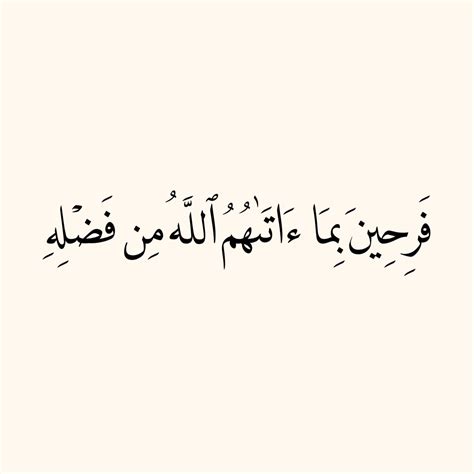 فَرِحِينَ بِمَا ءَاتَىٰهُمُ ٱللَّهُ مِن فَضْلِهِ